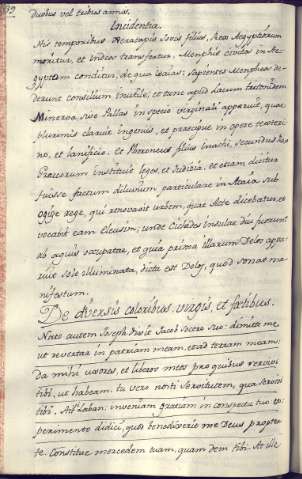 Duobus vel tribus annis.
Incidentia.
His temporibus Jovis filius, Rex Ægyptiorum
moritur, et in Deos transfertur. Memphis civitas in Æ-
gypto conditur, de qua Isaias: sapientes Mempheos de-
derunt consilium inutile, et tunc apud lacum
Minerva, sive Pallas in specie virginali apparuit, quæ
plurimis claruit ingeniis, et præcipue in opere textri-
no, et lanificio. et Phoroneus filius Inachi, secundus Rex
Græcorum instituit leges, et Judicia. et etiam dicitur
fuisse factum diluvium particulare in Acaia, sub
Ogige rege, qui renovavit urbem, quæ Acte dicebatur, et
vocabit eam Eleusin, unde Ciclades insulæ diu fuerunt
ab aquis occupatæ, et quia prima illarum Delos appa-
ruit sole illuminata, dicta est Delos, quod sonat ma-
nifestum.
De diversis coloribus, virgis, et fœtibus.
Nato autem Joseph, dixit Jacob Socero suo: dimitte me,
ut revertar in patriam meam, et ad terram meam:
da mihi uxores, et liberos meos pro quibus servivi
tibi, ut habeam. tu vero nosti servitutem, qua servivi
tibi. Ait Laban: inveniam gratiam in conspectu tuo ex-
perimento didici, quod benedixerit me Deus propter
te. Constitue mercedem tuam, quam dem tibi. At ille